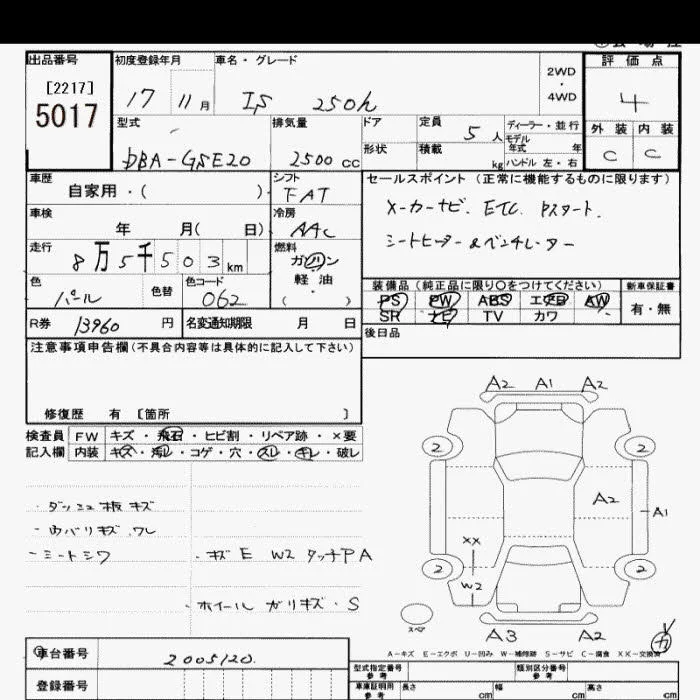 出品番号 初度登録年月 車名・グレード 2WD・4WD 評価点
[2217]
5017 17 11月 IS 250h 4
型式 排気量 ドア 定員 5人 ディーラー・並行 外装 内装
モデル年式 年
DBA-GSE20 2500cc 形状 積載 kg ハンドル 左・右 C C
車歴 シフト セールスポイント (正常に機能するものに限ります)
自家用・( ) FAT メーカーナビ. ETC. Pスタート.
車検 冷房
年 月( 日) AAC シートヒーター&ベンチレーター
走行 燃料
8万5千503km ガソリン
軽油 装備品 (純正品に限り○をつけてください) 新車保証書
色 色替 色コード ( ) PS PW ABS エアB AW 有・無
パール 062 SR ナビ TV カワ
R券 13960円 名変通知期限 月 日 後日品
注意事項申告欄 (不具合内容等は具体的に記入して下さい)
修復歴 有 [箇所 ]
検査員 FW キズ・飛石・ヒビ割・リペア跡・×要
記入欄 内装 キズ・汚レ・コゲ・穴・スレ・キレ・破レ
・ダッシュ板キズ
・ウバリキズ.ワレ
-シートシワ ・キズE W2 タッチPA
・ホイールガリキズ・S
A2 A1 A2
2 2
A2 A1
XX
2 2
W2
スペア A3 A2
A-キズ E-エクボ U-凹み W-補修跡 S-サビ C-腐食 XX-交換済
車台番号 2005120.
登録番号
型式指定番号 類別区分番号
参考 参考
車庫証明用 長さ cm 幅 cm 高さ cm
参考